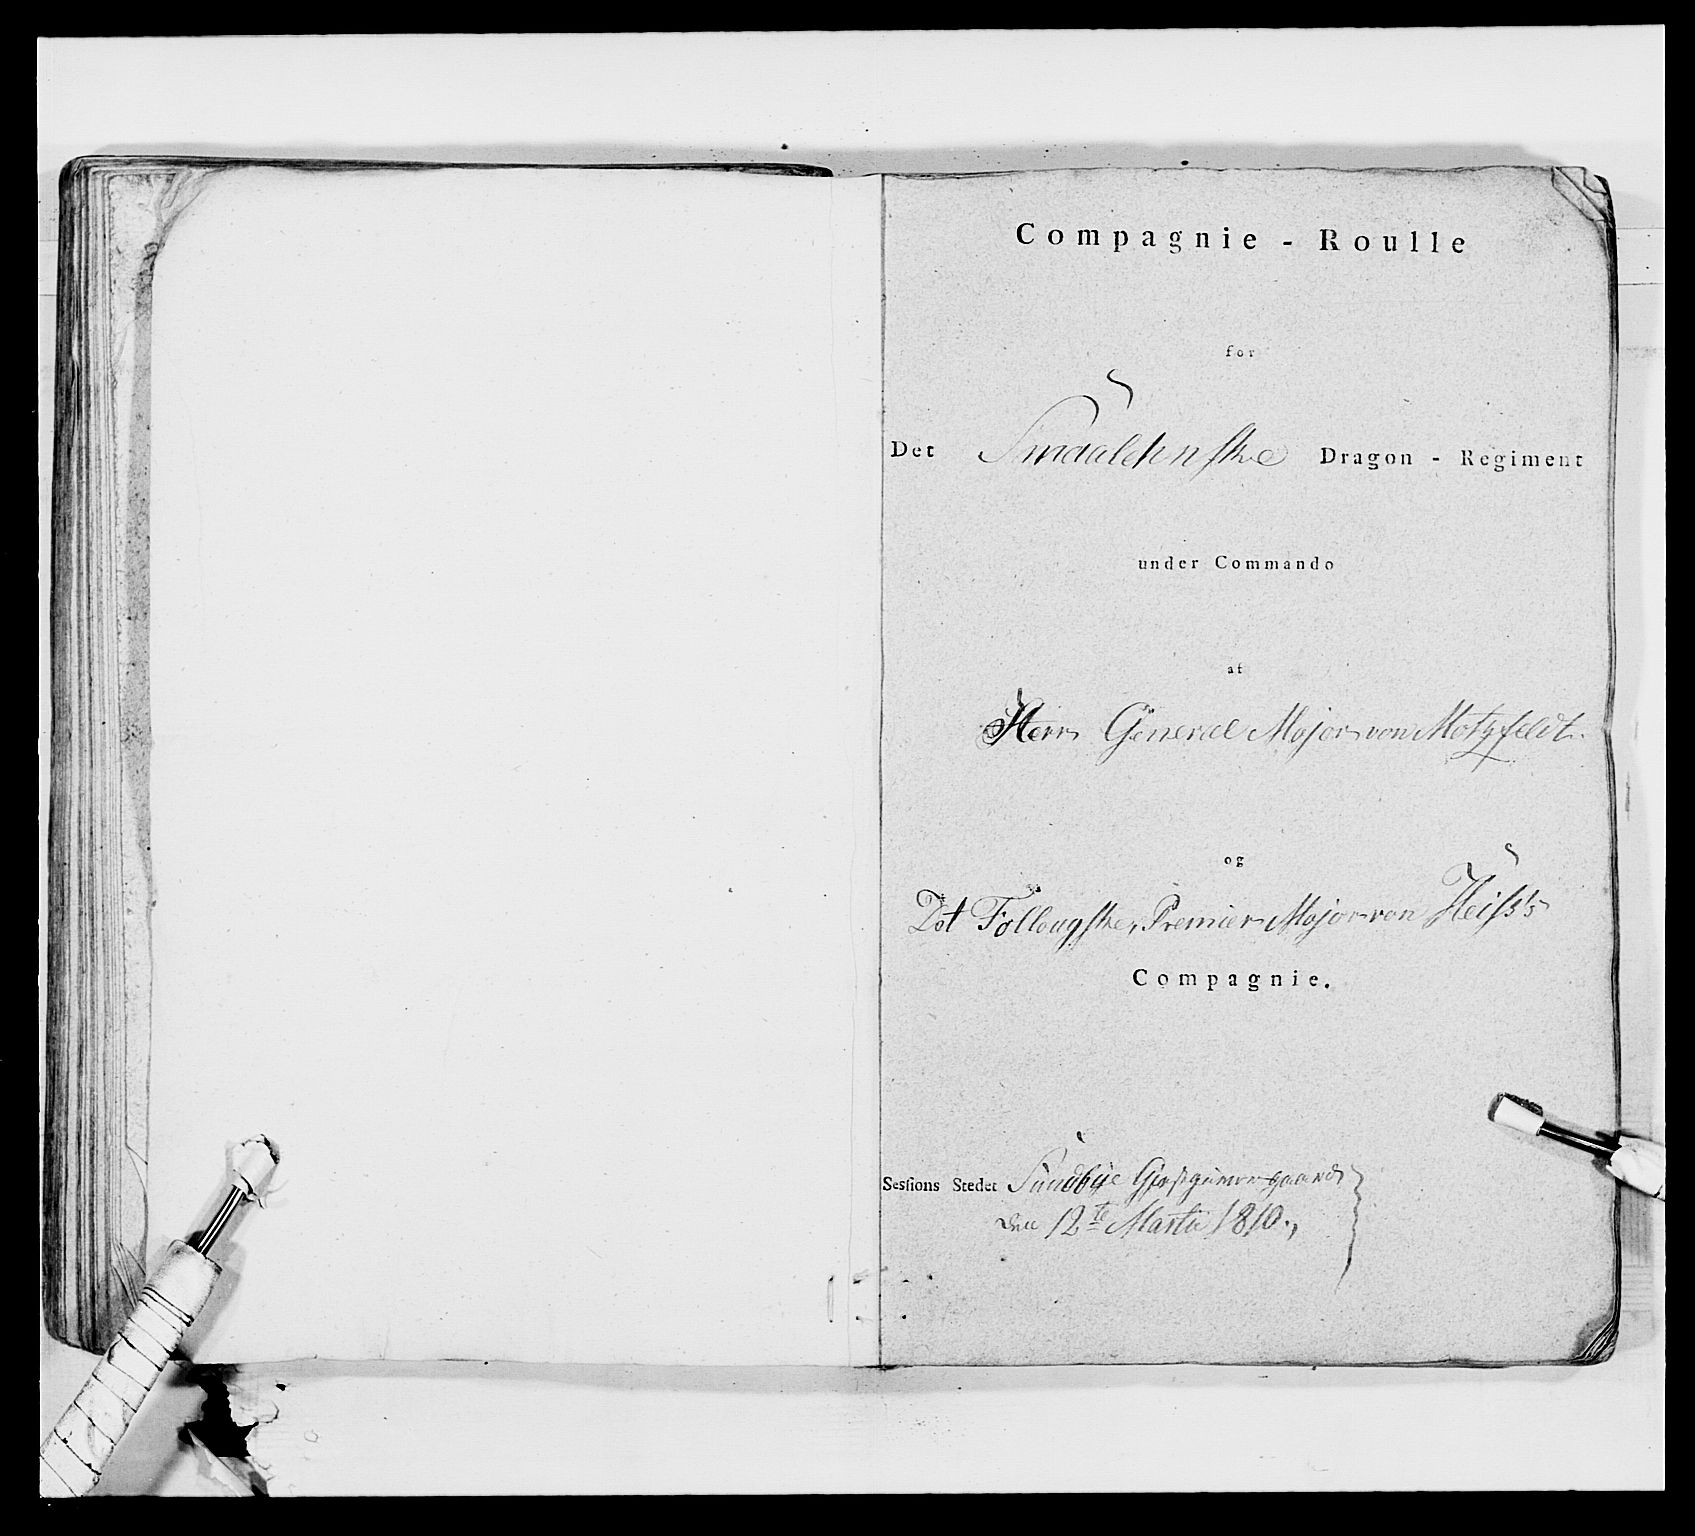 Compagnie - Roulle
for
Det Smaalehnske Dragon - Regiment
under Commando
af
Herr General Major von Motzfeldt.
og
Det Follougske, Premier Major von Heiss's
Compagnie.
Sessions Stedet Sundbye Gjæstgivergaard
den 12te Martii 1810.,